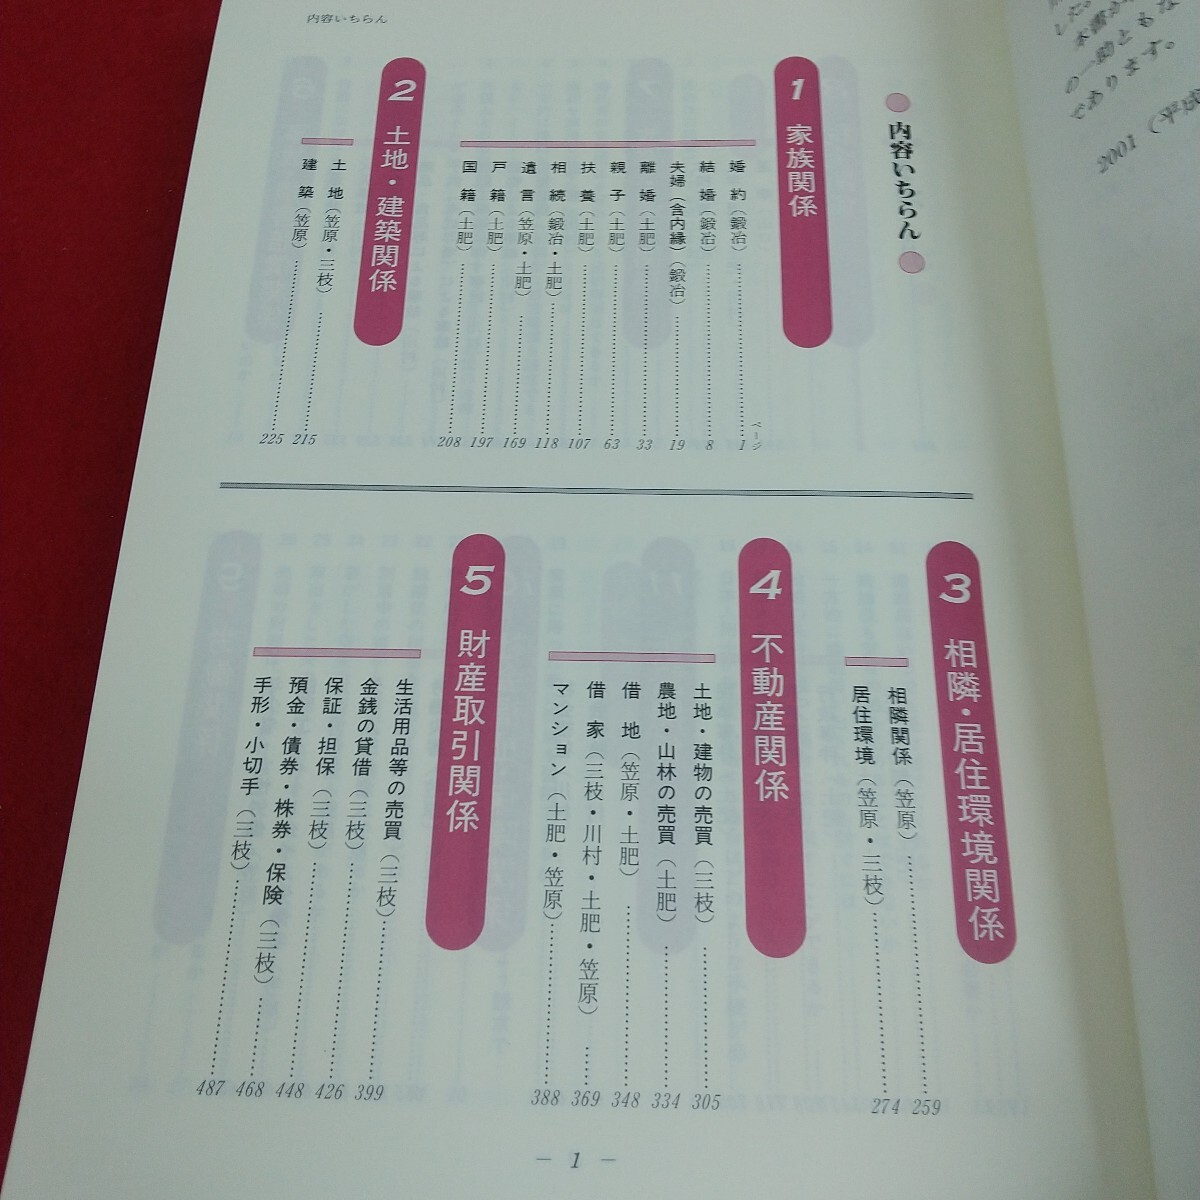 内容いちらん
●内容いちらん●
1 家族関係
ページ
婚約(鍛冶)……1
結婚(鍛冶)……8
夫婦(含内縁)(鍛冶)……19
離婚(土肥)……33
親子(土肥)……63
扶養(土肥)……107
相続(鍛冶・土肥)……118
遺言(笠原・土肥)……169
戸籍(土肥)……197
国籍(土肥)……208
2 土地・建築関係
土地(笠原・三枝)……215
建築(笠原)……225
3 相隣・居住環境関係
相隣関係(笠原)……259
居住環境(笠原・三枝)……274
4 不動産関係
土地・建物の売買(三枝)……305
農地・山林の売買(土肥)……334
借地(笠原・土肥)……348
借家(三枝・川村・土肥・笠原)……369
マンション(土肥・笠原)……388
5 財産取引関係
生活用品等の売買(三枝)……399
金銭の貸借(三枝)……426
保証・担保(三枝)……448
預金・債券・株券・保険(三枝)……468
手形・小切手(三枝)……487
— 1 —
した。
の一助ともな
であります。
2001(平成